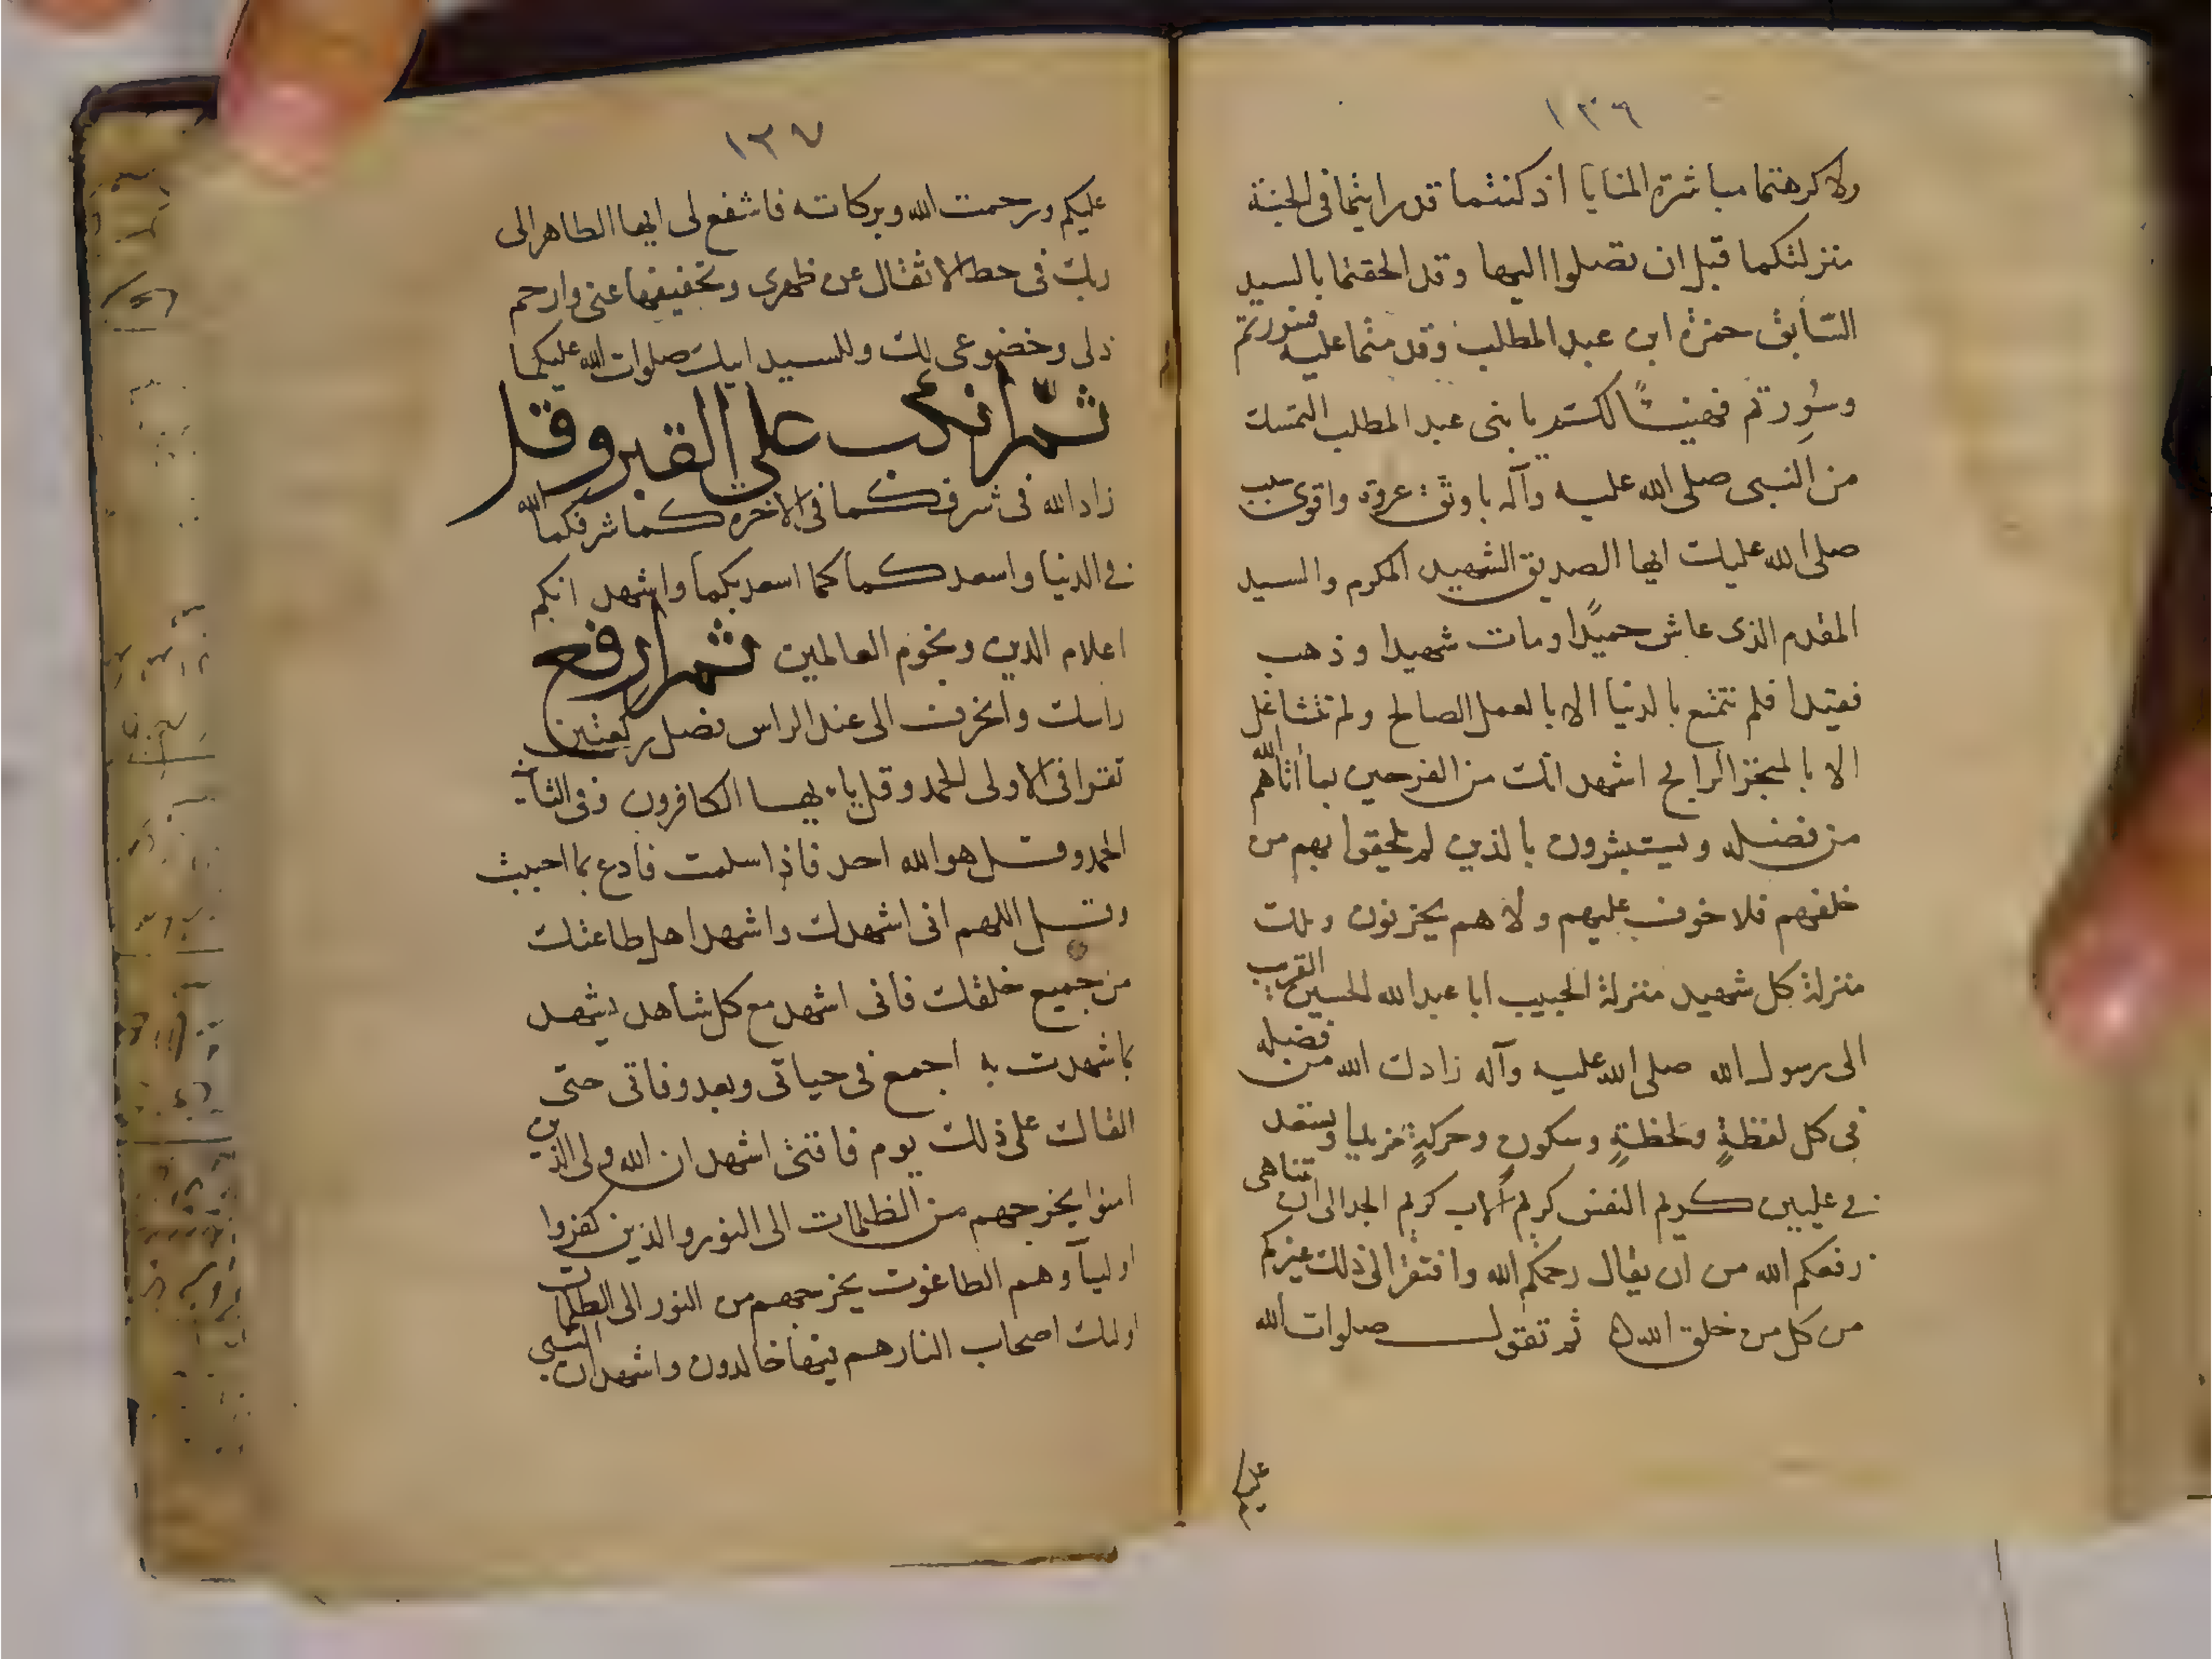 ١٣٦
ولا كرهتما مباشرة المنايا اذ كنتما قد رايتما فى الجنة
منزلتكما قبل ان تصلوا اليها وقد الحقتما بالسيد
السابق حمزة ابن عبد المطلب وقدمتما عليه
وسُرِرتم فهنيئًا لكم يا بنى عبد المطلب التمسك
من النبى صلى الله عليه وآله باوثق عروة واقوى سبب
صلى الله عليك ايها الصديق الشهيد المكرم والسيد
المقدم الذى عاش حميدًا ومات شهيدا وذهب
فقيدا فلم تتمتع بالدنيا الا بالعمل الصالح ولم تتشاغل
الا بالمتجر الرابح اشهد انك من الفرحين بما أتاهم الله
من فضله ويستبشرون بالذين لم يلحقوا بهم من
خلفهم فلا خوف عليهم ولا هم يحزنون وتلك
منزلة كل شهيد منزلة الحبيب ابا عبد الله الحسين القريب
الى رسول الله صلى الله عليه وآله زادك الله من فضله
فى كل لفظةٍ ولحظةٍ وسكونٍ وحركةٍ مزيدا
فى عليين كريم النفس كريم الاب كريم الجد الى ان تناهى
رفعكم الله من ان يقال رحمكم الله وافتقر الى ذلك غيركم
من كل من خلق الله ثم تقول صلوات الله
عليكم
١٣٧
عليكم ورحمت الله وبركاته فاشفع لى ايها الطاهر الى
ربك فى حط الاثقال عن ظهرى وتخفيفها عنى وارحم
ذلى وخضوعى لك وللسيد ابيك صلوات الله عليكما
ثم انكب على القبر وقل
زاد الله فى شرفكما فى الاخرة كما شرفكما الله
فى الدنيا واسعدكما كما اسعد بكما واشهد انكم
اعلام الدين ونجوم العالمين ثم ارفع
راسك وانحرف الى عند الراس فصل ركعتين
تقرا فى الاولى الحمد وقل يا ايها الكافرون وفى الثانية
الحمد وقل هو الله احد فاذا سلمت فادع بما احببت
وقل اللهم انى اشهدك واشهد اهل طاعتك
من جميع خلقك فانى اشهد مع كل شاهد يشهد
بما شهدت به اجمع فى حياتى وبعد وفاتى حتى
القاك على ذلك يوم فاقتى اشهد ان الله ولى الذين
امنوا يخرجهم من الظلمات الى النور والذين كفروا
اوليآوهم الطاغوت يخرجهم من النور الى الظلمات
اولئك اصحاب النار هم فيها خالدون واشهد ان النبى